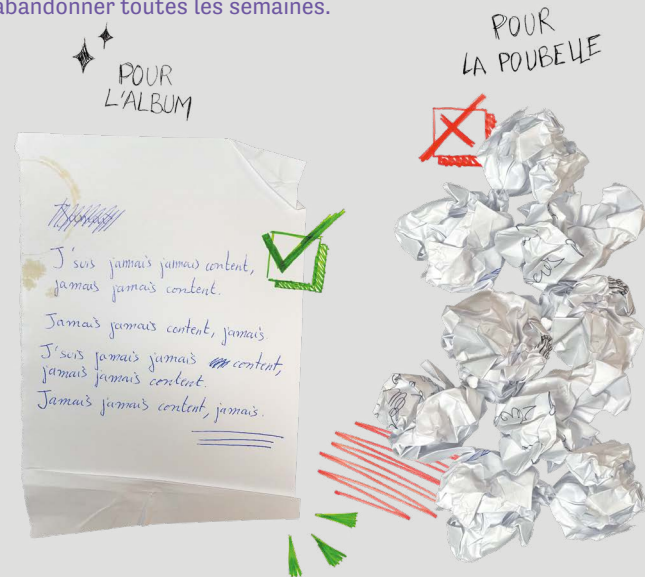 abandonner toutes les semaines.
POUR
L'ALBUM
POUR
LA POUBELLE
J'suis jamais jamais content,
jamais jamais content.
Jamais jamais content, jamais.
J'suis jamais jamais content,
jamais jamais content.
Jamais jamais content, jamais.